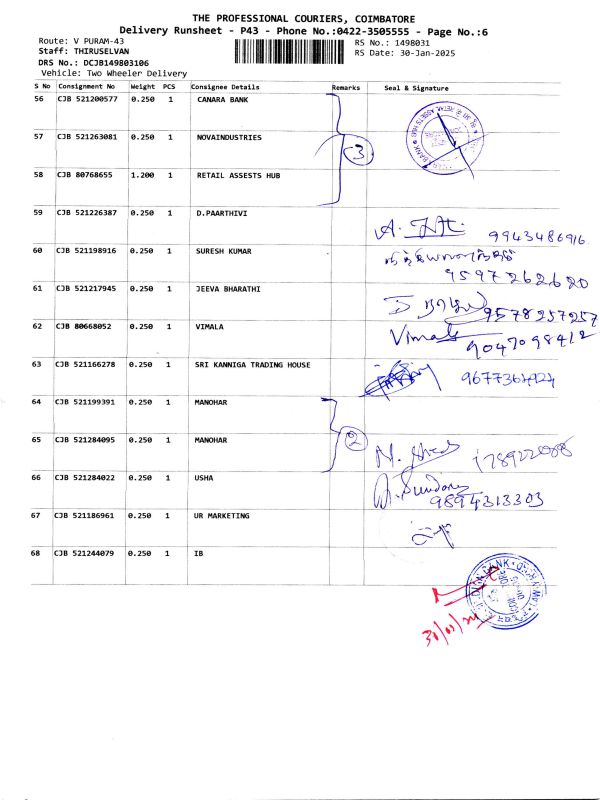 THE PROFESSIONAL COURIERS, COIMBATORE
Delivery Runsheet - P43 - Phone No.:0422-3505555 - Page No.:6
Route: V PURAM-43
RS No.: 1498031
Staff: THIRUSELVAN
RS Date: 30-Jan-2025
DRS No.: DCJB149803106
Vehicle: Two Wheeler Delivery
S No Consignment No Weight PCS Consignee Details Remarks Seal & Signature
56 CJB 521200577 0.250 1 CANARA BANK
57 CJB 521263081 0.250 1 NOVAINDUSTRIES
3
58 CJB 80768655 1.200 1 RETAIL ASSESTS HUB
59 CJB 521226387 0.250 1 D.PAARTHIVI
9943486916
60 CJB 521198916 0.250 1 SURESH KUMAR
9597262620
61 CJB 521217945 0.250 1 JEEVA BHARATHI
9578257257
62 CJB 80668052 0.250 1 VIMALA Vimala
9047098412
63 CJB 521166278 0.250 1 SRI KANNIGA TRADING HOUSE
64 CJB 521199391 0.250 1 MANOHAR
2
65 CJB 521284095 0.250 1 MANOHAR
66 CJB 521284022 0.250 1 USHA
9894313303
67 CJB 521186961 0.250 1 UR MARKETING
68 CJB 521244079 0.250 1 IB